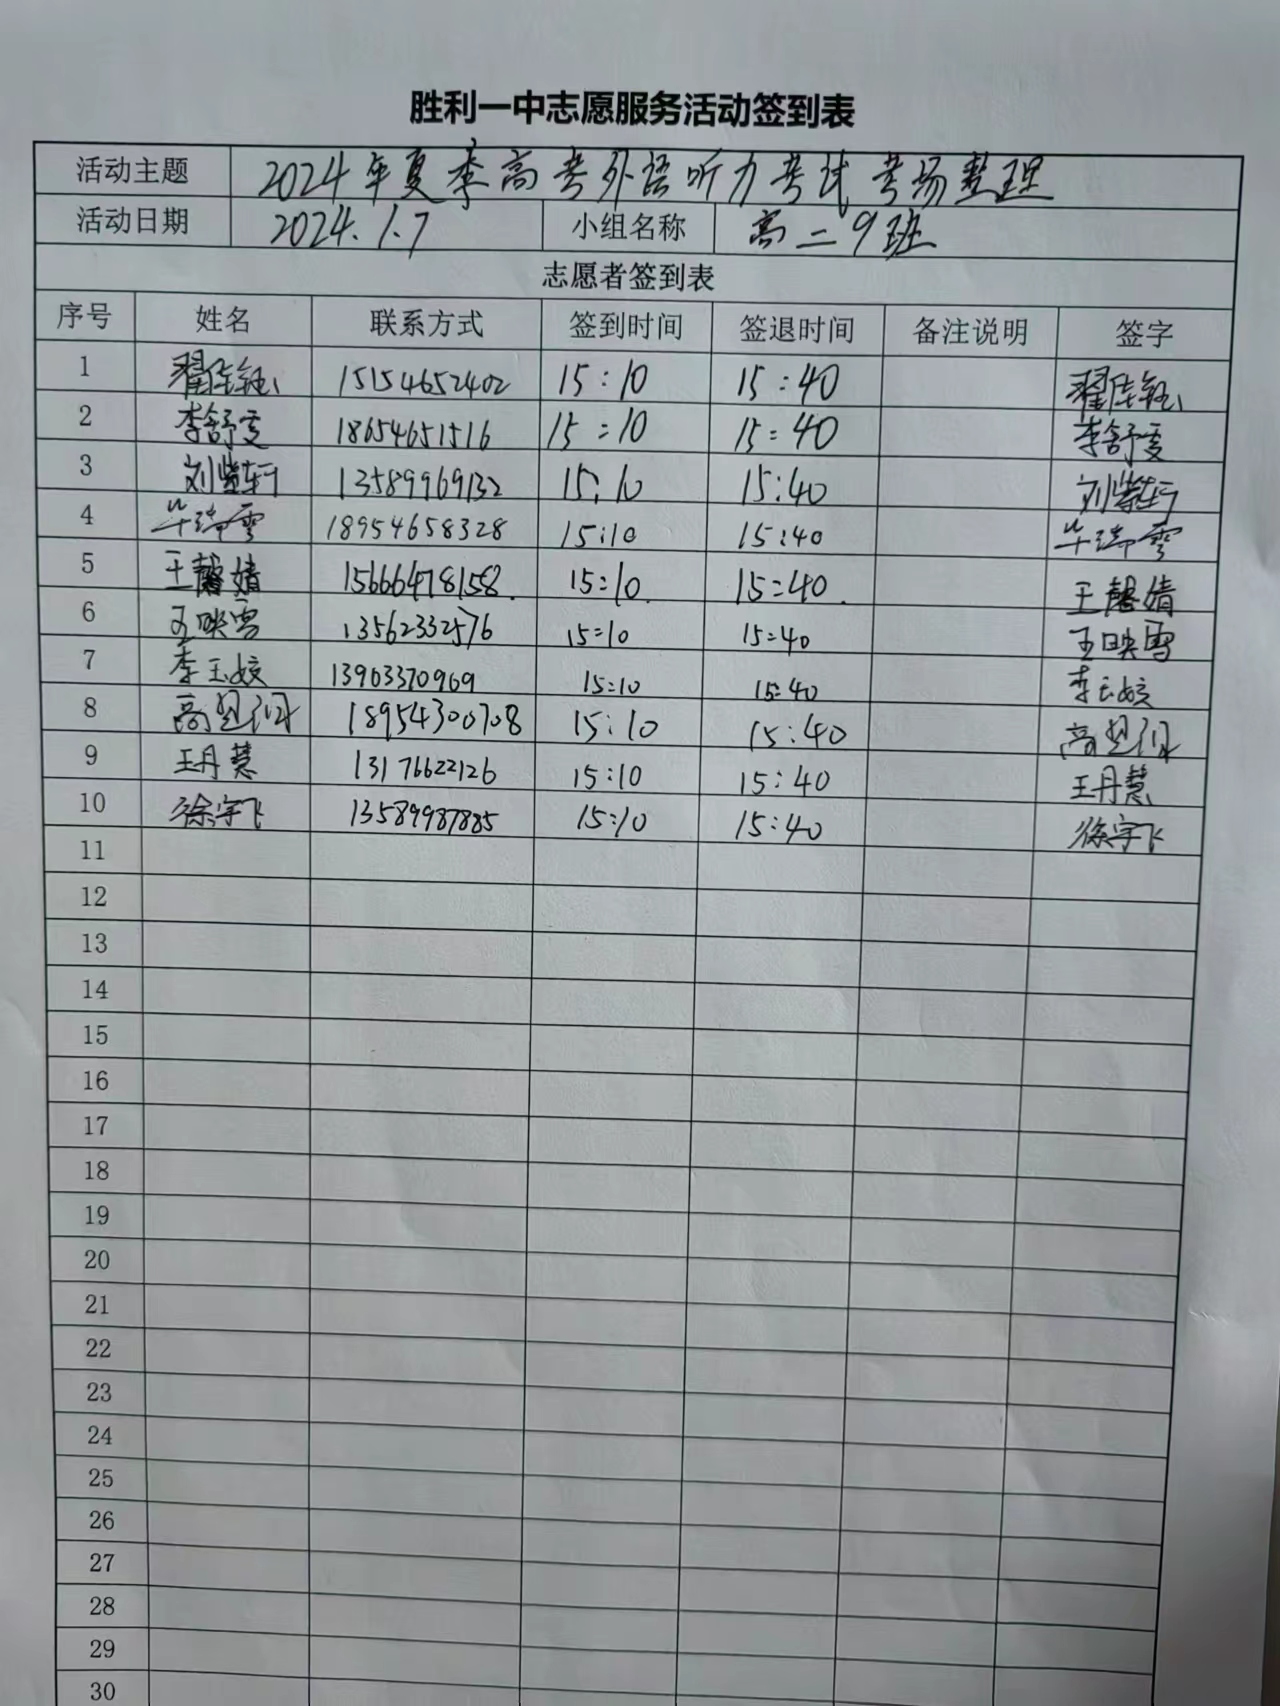 胜利一中志愿服务活动签到表
活动主题 2024年夏季高考外语听力考试考场整理
活动日期 2024.1.7 小组名称 高二9班
志愿者签到表
序号 姓名 联系方式 签到时间 签退时间 备注说明 签字
1 翟佳钰 15154652402 15:10 15:40 翟佳钰
2 李舒雯 18654651516 15:10 15:40 李舒雯
3 刘紫轩 13589969132 15:10 15:40 刘紫轩
4 毕瑞雪 18954658328 15:10 15:40 毕瑞雪
5 王馨婧 15666478158 15:10 15:40 王馨婧
6 王映雪 13562332576 15:10 15:40 王映雪
7 李玉姣 13963370969 15:10 15:40 李玉姣
8 高 18954300708 15:10 15:40 高
9 王丹慧 13176622126 15:10 15:40 王丹慧
10 徐宇飞 13589987885 15:10 15:40 徐宇飞
11
12
13
14
15
16
17
18
19
20
21
22
23
24
25
26
27
28
29
30